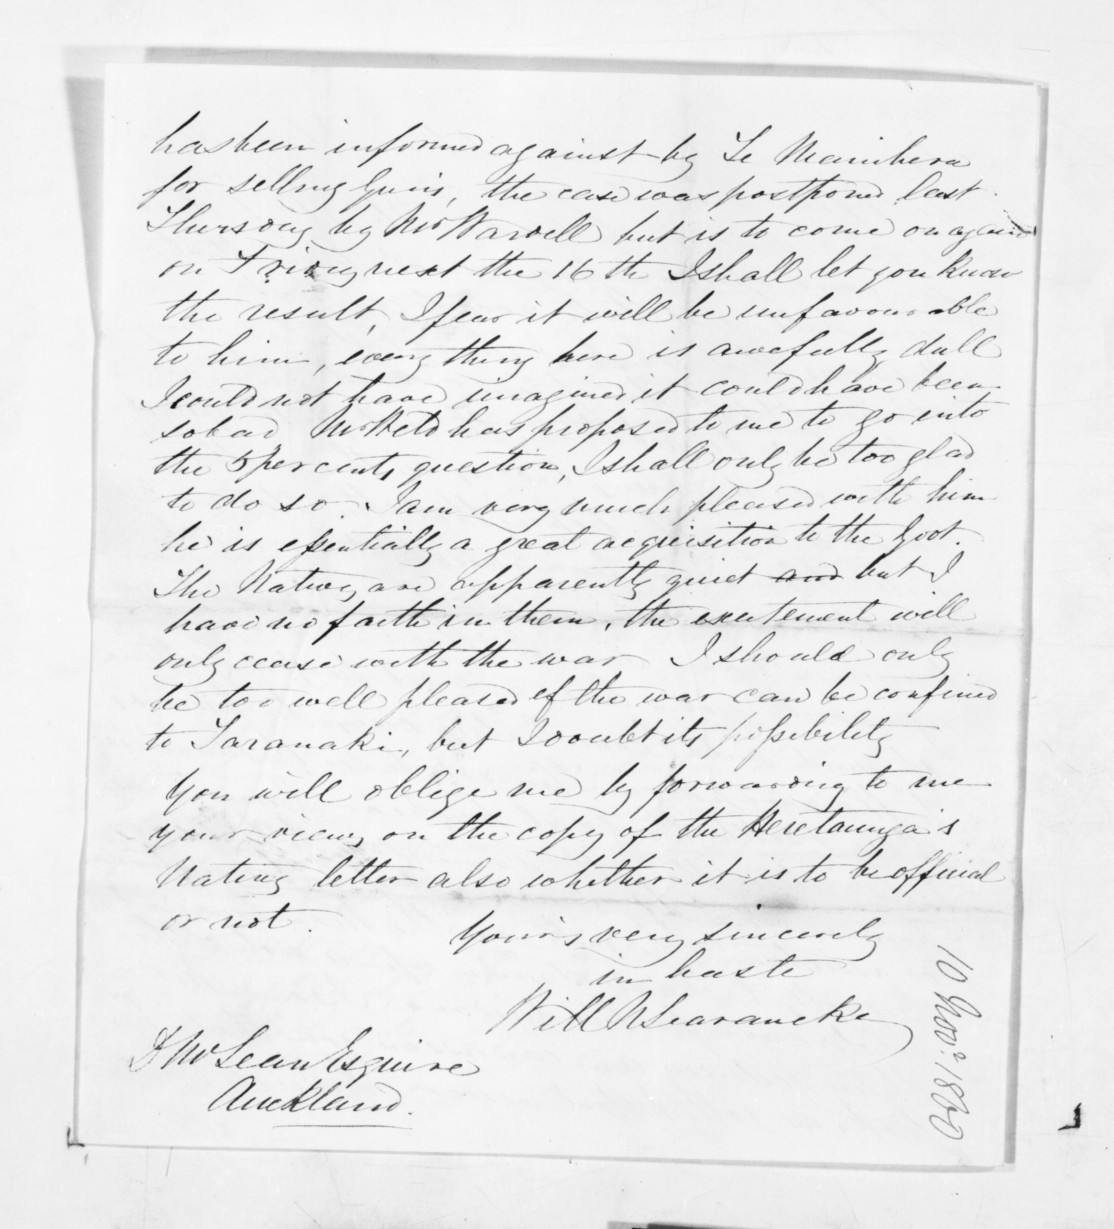 has been informed against by Te Manihera
for selling Guns, the case was postponed last
Thursday by Mr Wardell but is to come on again
on Friday next the 16th I shall let you know
the result, I fear it will be unfavourable
to him, every thing here is awefully dull
I could not have imagined it could have been
so bad Mr Held has proposed to me to go into
the 5 per cents question, I shall only be too glad
to do so. I am very much pleased with him
he is essentially a great acquisition to the Govt.
The Natives are apparently quiet and but I
have no faith in them, the excitement will
only cease with the war I should only
be too well pleased if the war can be confined
to Taranaki, but I doubt its possibility
You will oblige me by forwarding to me
your views on the copy of the Heretaunga's
Natives letter also whether it is to be official
or not.
Yours very sincerely
in haste
Will N Searancke
D McLean Esquire
Auckland.
10 Nov. 1860